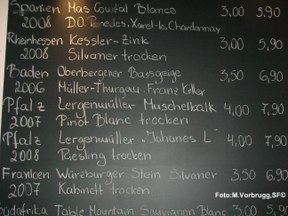 Spanien Mas Comtal Blanco 3,00 5,90
2008 D.O. Penedes, Xarel-lo, Chardonnay
Rheinhessen Kessler-Zink 3,00 5,90
2008 Silvaner trocken
Baden Oberbergener Bassgeige 3,50 6,90
2006 Müller-Thurgau, Franz Keller
Pfalz Lergenmüller Muschelkalk 4,00 7,90
2007 Pinot Blanc trocken
Pfalz Lergenmüller "Johanes L" 4,00 7,90
2008 Riesling trocken
Franken Würzburger Stein Silvaner 3,50 6,90
2007 Kabinett trocken
Foto: M.Vorbrugg,SF©
Südafrika Table Mountain Sauvignon Blanc 3,00 5,90